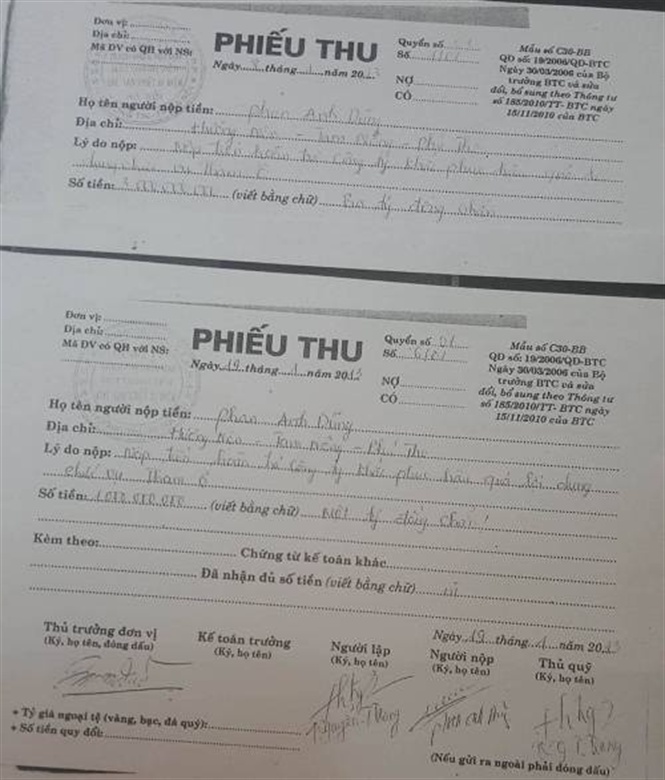 Đơn vị:
Địa chỉ:
Mã DV có QH với NS:
PHIẾU THU
Ngày 8 tháng 1 năm 2013
Quyển số
Số
NỢ
CÓ
Mẫu số C30-BB
QD số: 19/2006/QD-BTC
Ngày 30/03/2006 của Bộ
trưởng BTC và sửa
đổi, bổ sung theo Thông tư
số 185/2010/TT- BTC ngày
15/11/2010 của BTC
Họ tên người nộp tiền: Phan Anh Dũng
Địa chỉ: Hương Nộn - Tam Nông - Phú Thọ
Lý do nộp: Nộp tiền hoàn trả công ty khắc phục hậu quả
chức vụ tham ô
Số tiền: 3.000.000.000 (viết bằng chữ) Ba tỷ đồng chẵn
Đơn vị:
Địa chỉ:
Mã DV có QH với NS:
PHIẾU THU
Ngày 19 tháng 1 năm 2013
Quyển số 01
Số
NỢ
CÓ
Mẫu số C30-BB
QD số: 19/2006/QD-BTC
Ngày 30/03/2006 của Bộ
trưởng BTC và sửa
đổi, bổ sung theo Thông tư
số 185/2010/TT- BTC ngày
15/11/2010 của BTC
Họ tên người nộp tiền: Phan Anh Dũng
Địa chỉ: Hương Nộn - Tam Nông - Phú Thọ
Lý do nộp: Nộp tiền hoàn trả công ty khắc phục hậu quả lợi dụng
chức vụ tham ô
Số tiền: 1.000.000.000 (viết bằng chữ) Một tỷ đồng chẵn!
Kèm theo: Chứng từ kế toán khác
Đã nhận đủ số tiền (viết bằng chữ)
Ngày 19 tháng 1 năm 2013
Thủ trưởng đơn vị
(Ký, họ tên, đóng dấu)
Kế toán trưởng
(Ký, họ tên)
Người lập
(Ký, họ tên)
Người nộp
(Ký, họ tên)
Thủ quỹ
(Ký, họ tên)
+ Tỷ giá ngoại tệ (vàng, bạc, đá quý):
+ Số tiền quy đổi:
(Nếu gửi ra ngoài phải đóng dấu)